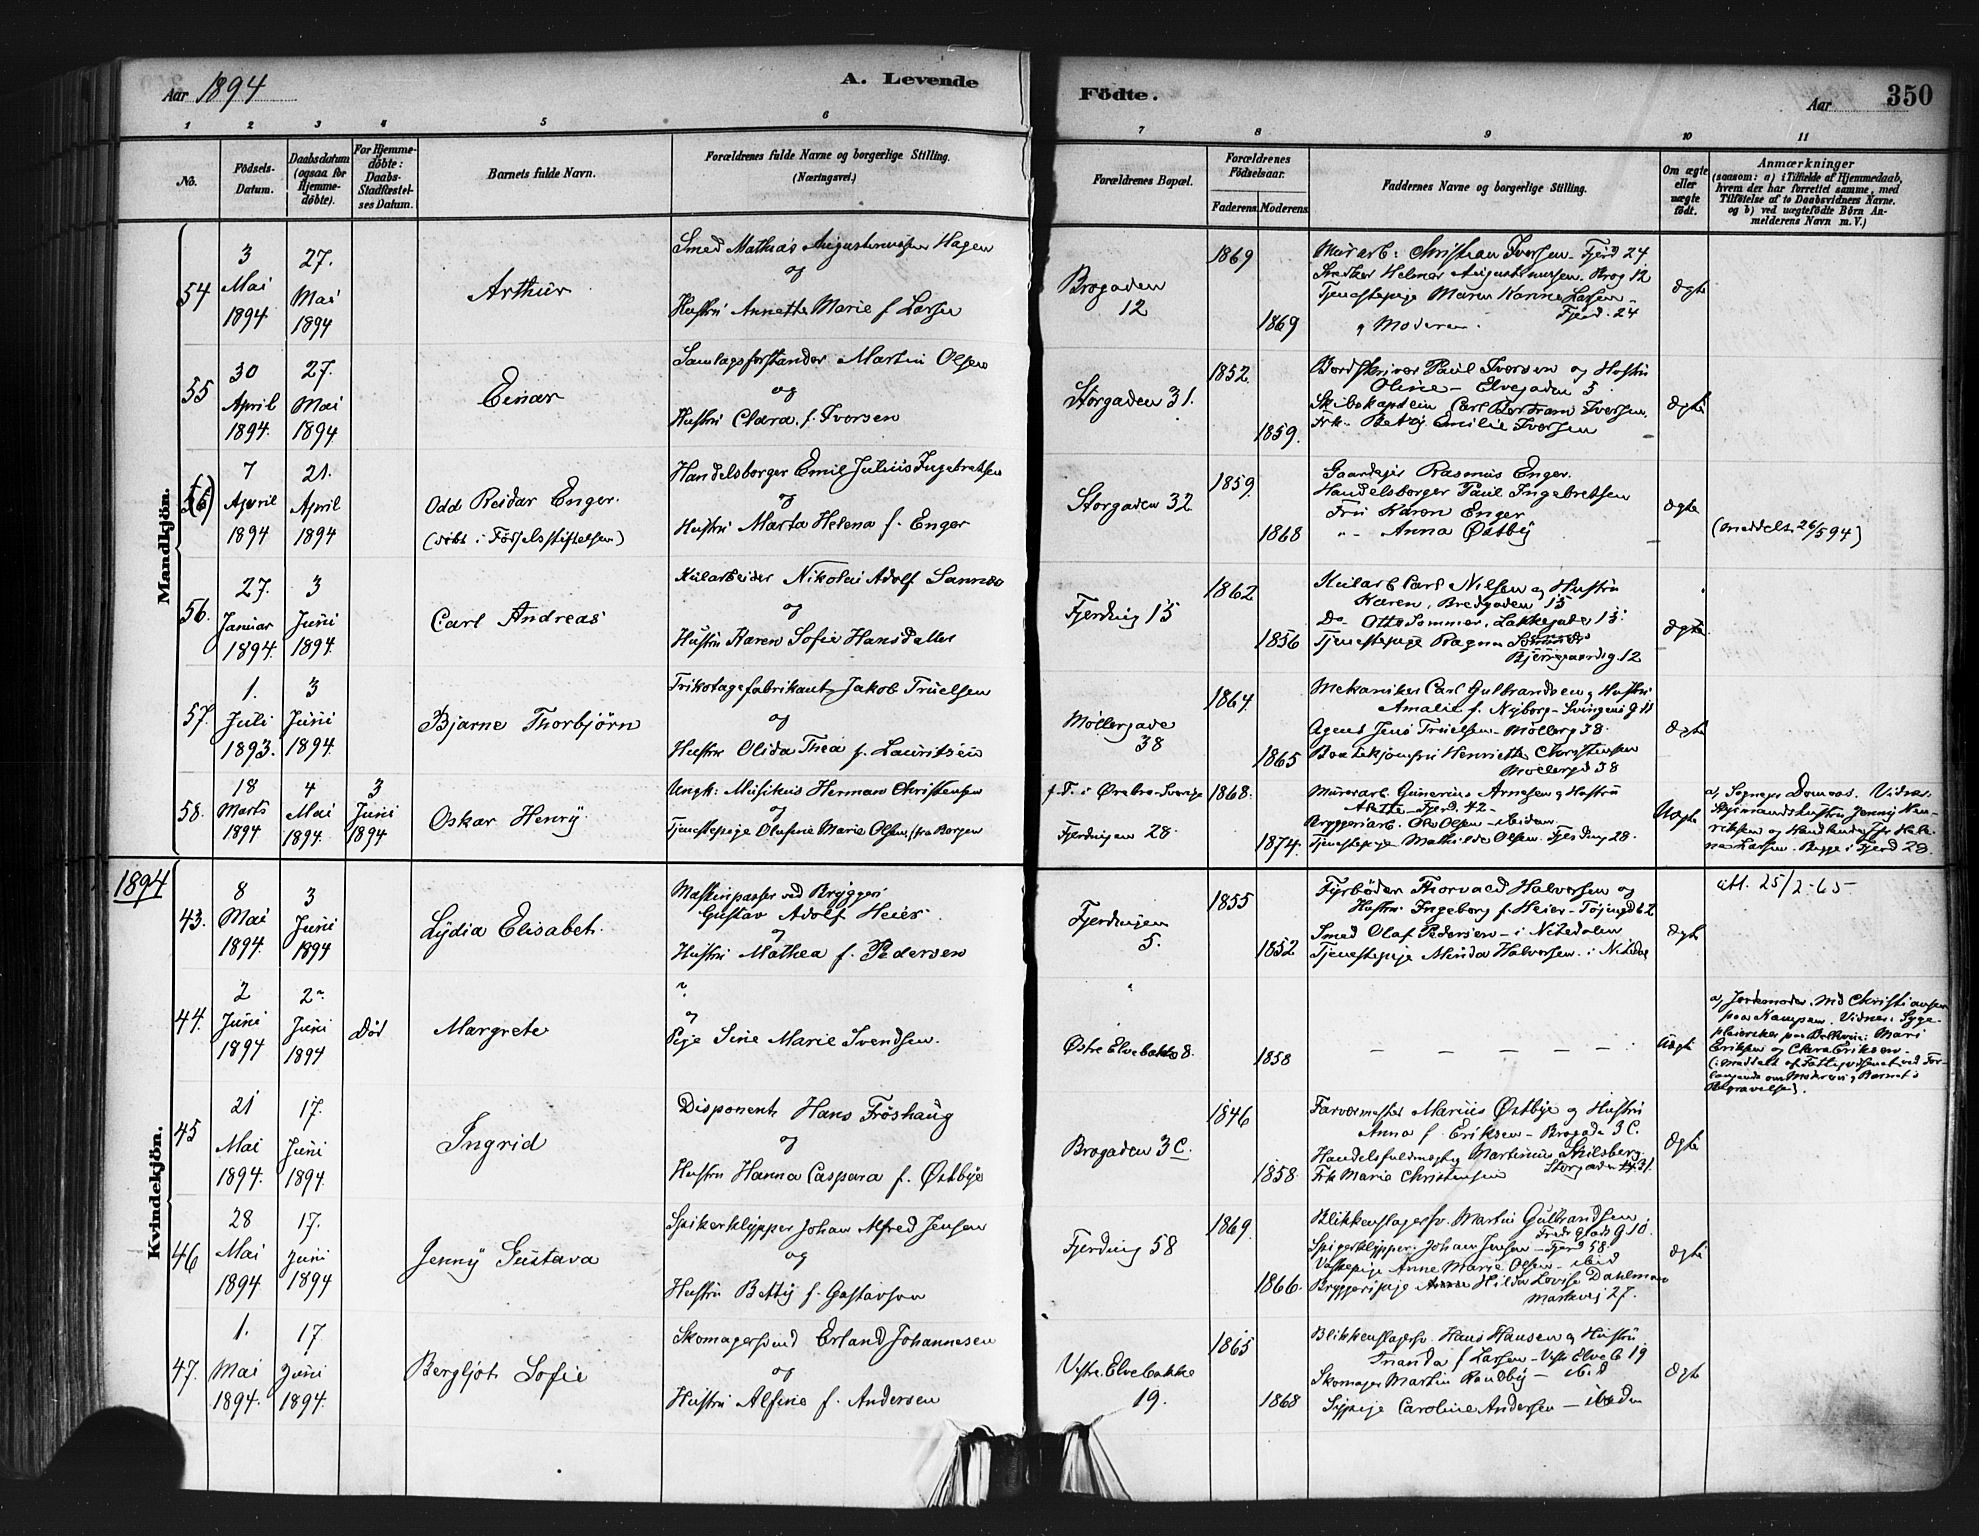 Aar 1894
A. Levende
Födte.
Aar
350
1 2 3 4 5 6 7 8 9 10 11
No.
Födsels-
Datum.
Daabsdatum
(ogsaa for
Hjemme-
döbte).
For Hjemme-
döbte:
Daabs-
Stadfæstel-
ses Datum.
Barnets fulde Navn.
Forældrenes fulde Navne og borgerlige Stilling.
(Næringsvei.)
Forældrenes Bopæl.
Forældrenes
Födselsaar.
Faderens.
Moderens.
Faddernes Navne og borgerlige Stilling.
Om ægte
eller
uægte
födt.
Anmærkninger
(saasom: a) i Tilfælde af Hjemmedaab,
hvem der har forrettet samme, med
Tilföielse af to Daabsvidners Navne.
og b) ved uægtefödte Börn An-
melderens Navn m. V.)
Mandkjön.
54
3
Mai
1894
27.
Mai
1894
Arthur
Smed Mathias Augustinussen Hagen
og
Hustru Annette Marie f. Larsen
Brogaden
12
1869
1869
Murarb: Christian Iversen Fjerd 24
Helmer Augustinussen Brog 12
Tjenestepige Maren Karine Larsen
Fjerd. 24
Moderen.
Ægte
55
30
April
1894.
27.
Mai
1894
Einar
Samlagsforstander Martin Olsen
og
Hustru Clara f. Iversen
Storgaden 31.
1852.
1859.
Bordskriver Paul Iversen og Hustru
Oline - Elvegaden 5
Skibskaptein Carl Bertram Iversen.
Frk. Betzy Emilie Iversen
Ægte
7
April
1894
21.
April
1894
Odd Reidar Enger.
(döbt i Födselsstiftelsen)
Handelsborger Emil Julius Ingebretsen
og
Hustru Marta Helena f. Enger
Storgaden 32
1859.
1868
Gaardejer Rasmus Enger.
Handelsborger Paul Ingebretsen
Fru Karen Enger
Anna Østby
Ægte
(meddelt 26/5 94)
56.
27.
Januar
1894.
3
Juni
1894.
Carl Andreas
Nikolai Adolf Sannes
og
Hustru Karen Sofie Hansdatter
Fjerding 15
1862
1856
Carl Nilsen og Hustru
Karen, Bredgaden 15
Do Otto Sommer, Lakkegade 15.
Tjenestepige Ragna
Bjerregaardsg. 12
Ægte
57.
1.
Juli
1893.
3
Juni
1894.
Bjarne Thorbjörn
Trikotagefabrikant Jakob Truelsen
og
Hustru Olida Thea f. Lauritsen
Møllergade
38
1864
1865
Mekaniker Carl Gulbrandsen og Hustru
Amalie f. Nyborg - Svingens g 11
Agent Jens Truelsen - Møllerg 38.
Henriette Christensen
Møllergd 38
Ægte
58.
18
Marts
1894
4
Mai
1894.
3
Juni
1894
Oskar Henry
Ungk: Musikus Herman Christensen
og
Tjenestepige Olufine Marie Olsen, fra Borgen
f. T. i Ørebro Sverige
Fjerdingen 28.
1868.
1874.
Murerarb. Gunerius Arnesen og Hustru
Anette - Fjerd. 42 -
Bryggeriarb. Ole Olsen - ibidem
Tjenestepige Mathilde Olsen Fjerding 28.
Uægte
a, Sogneprest Domaas. Vidner:
Jenny Hen-
riksen og Hele-
ne Larsen. Begge i Fjerd 28.
1894
Kvindekjön.
43.
8
Mai
1894
3
Juni
1894
Lydia Elisabet.
Maskinpasser ved Bryggeri
Gustav Adolf Heier.
og
Hustru Mathea f. Pedersen
Fjerdingen
5.
1855
1852
Fyrböder Thorvald Halvorsen og
Hustru Ingeborg f. Heier - Töiengd 62
Smed Olaf Pedersen - i Nitedalen
Tjenestepige Minda Halvorsen. i Nitedal
Ægte
att. 25/2-65-
44.
2
Juni
1894
2
Juni
1894
Död
Margrete
?
og
Pige Sine Marie Svendsen.
Østre Elvebakke 8.
1858
- - - - - -
Uægte
a, Jordemoder Md Christiansen
paa Kampen. Vidner: Syge-
pleiersker Marie
Eriksen og Clara Eriksen
om Moderens og Barnets
Begravelse).
45
21
Mai
1894.
17.
Juni
1894.
Ingrid
Disponent Hans Fröshaug
og
Hustru Hanna Caspara f. Østbye
Brogaden 3 C.
1846
1858.
Farvermester Marius Østbye og Hustru
Anna f. Eriksen - Brogade 3 C.
Handelsfuldmægtig Martinius Skilsberg
Storgaden 31.
Frk Marie Christensen
Ægte
46
28
Mai
1894
17.
Juni
1894
Jenny Gustava
Spikerklipper Johan Alfred Jensen
og
Hustru Betty f. Gustavson
Fjerding 58
1869.
1866.
Blikkenslagersv. Martin Gulbrandsen
g 10.
Spigerklipper Johan Jensen - Fjerd 58.
Vaskepige Anne Marie Olsen - ibid
Bryggeripige Hilda Lovise Dahlman
Markvej 27.
Ægte
47.
1.
Mai
1894.
17
Juni
1894.
Bergljot Sofie
Skomagersvend Erland Johannesen
og
Hustru Alfine f. Andersen
Vestre Elvebakke
19.
1865
1868
Blikkenslagersv. Hans Hansen og Hustru
Inanda f. Larsen - Vestr Elveb 19
Skomager Martin Randby - ibid
Sypige Caroline Andersen - ibidem
Ægte